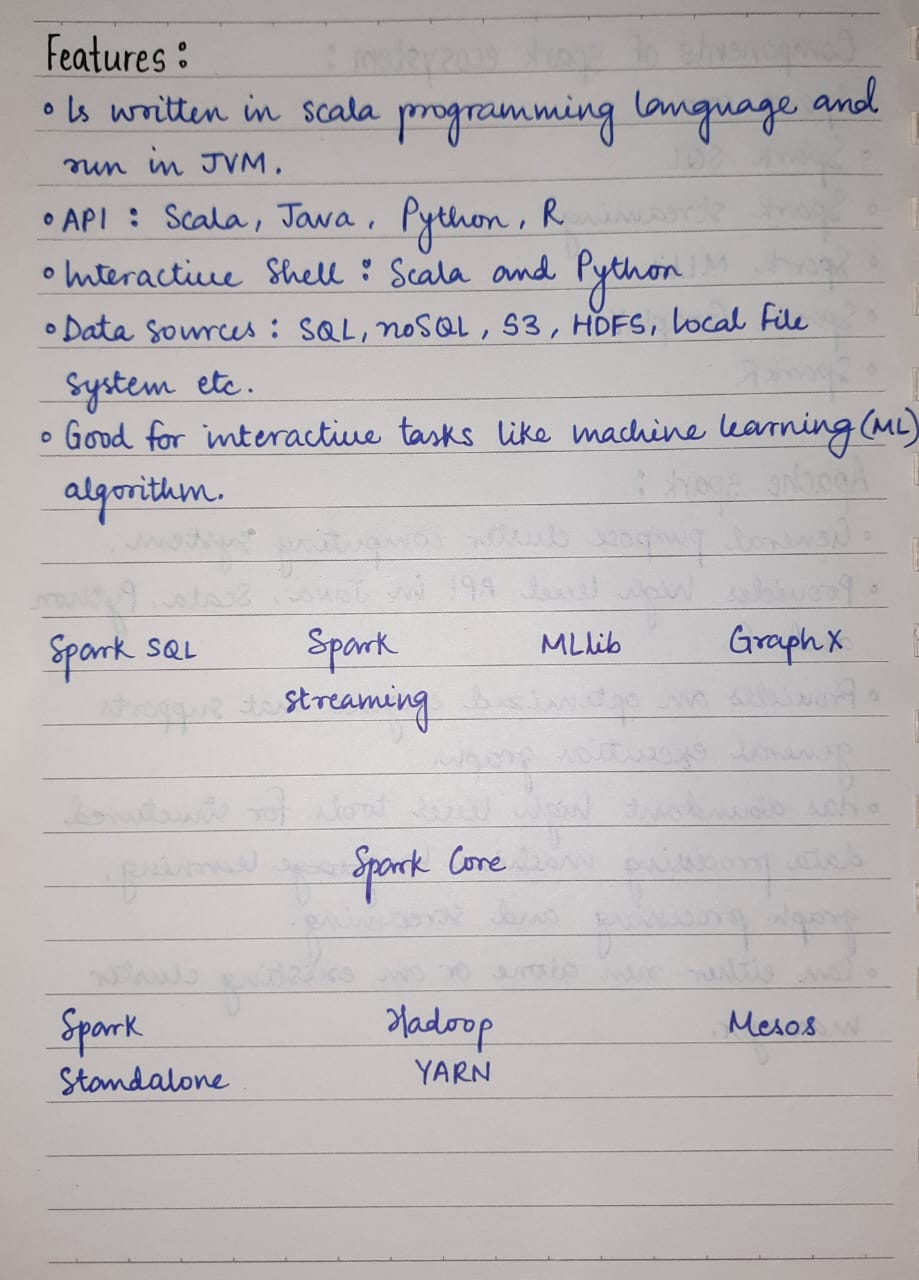 Features :
• Is written in scala programming language and
run in JVM.
• API : Scala, Java, Python, R
• Interactive Shell : Scala and Python
• Data Sources : SQL, noSQL, S3, HDFS, Local File
System etc.
• Good for interactive tasks like machine learning (ML)
algorithm.
Spark SQL Spark MLlib GraphX
streaming
Spark Core
Spark Hadoop Mesos
Standalone YARN